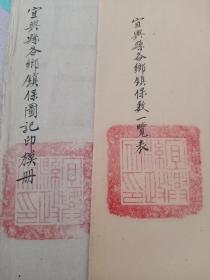 宜興縣各鄉鎮保數一覽表
宜興縣各鄉鎮保圖記印模册